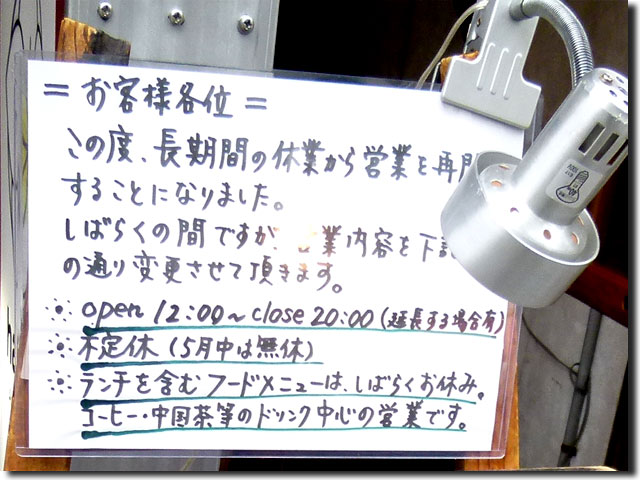 = お客様各位 =
この度、長期間の休業から営業を再開
することになりました。
しばらくの間ですが 営業内容を下記
の通り変更させて頂きます。
※ open 12:00～close 20:00 (延長する場合有)
※ 不定休 (5月中は無休)
※ ランチを含むフードメニューは、しばらくお休み。
コーヒー・中国茶等のドリンク中心の営業です。